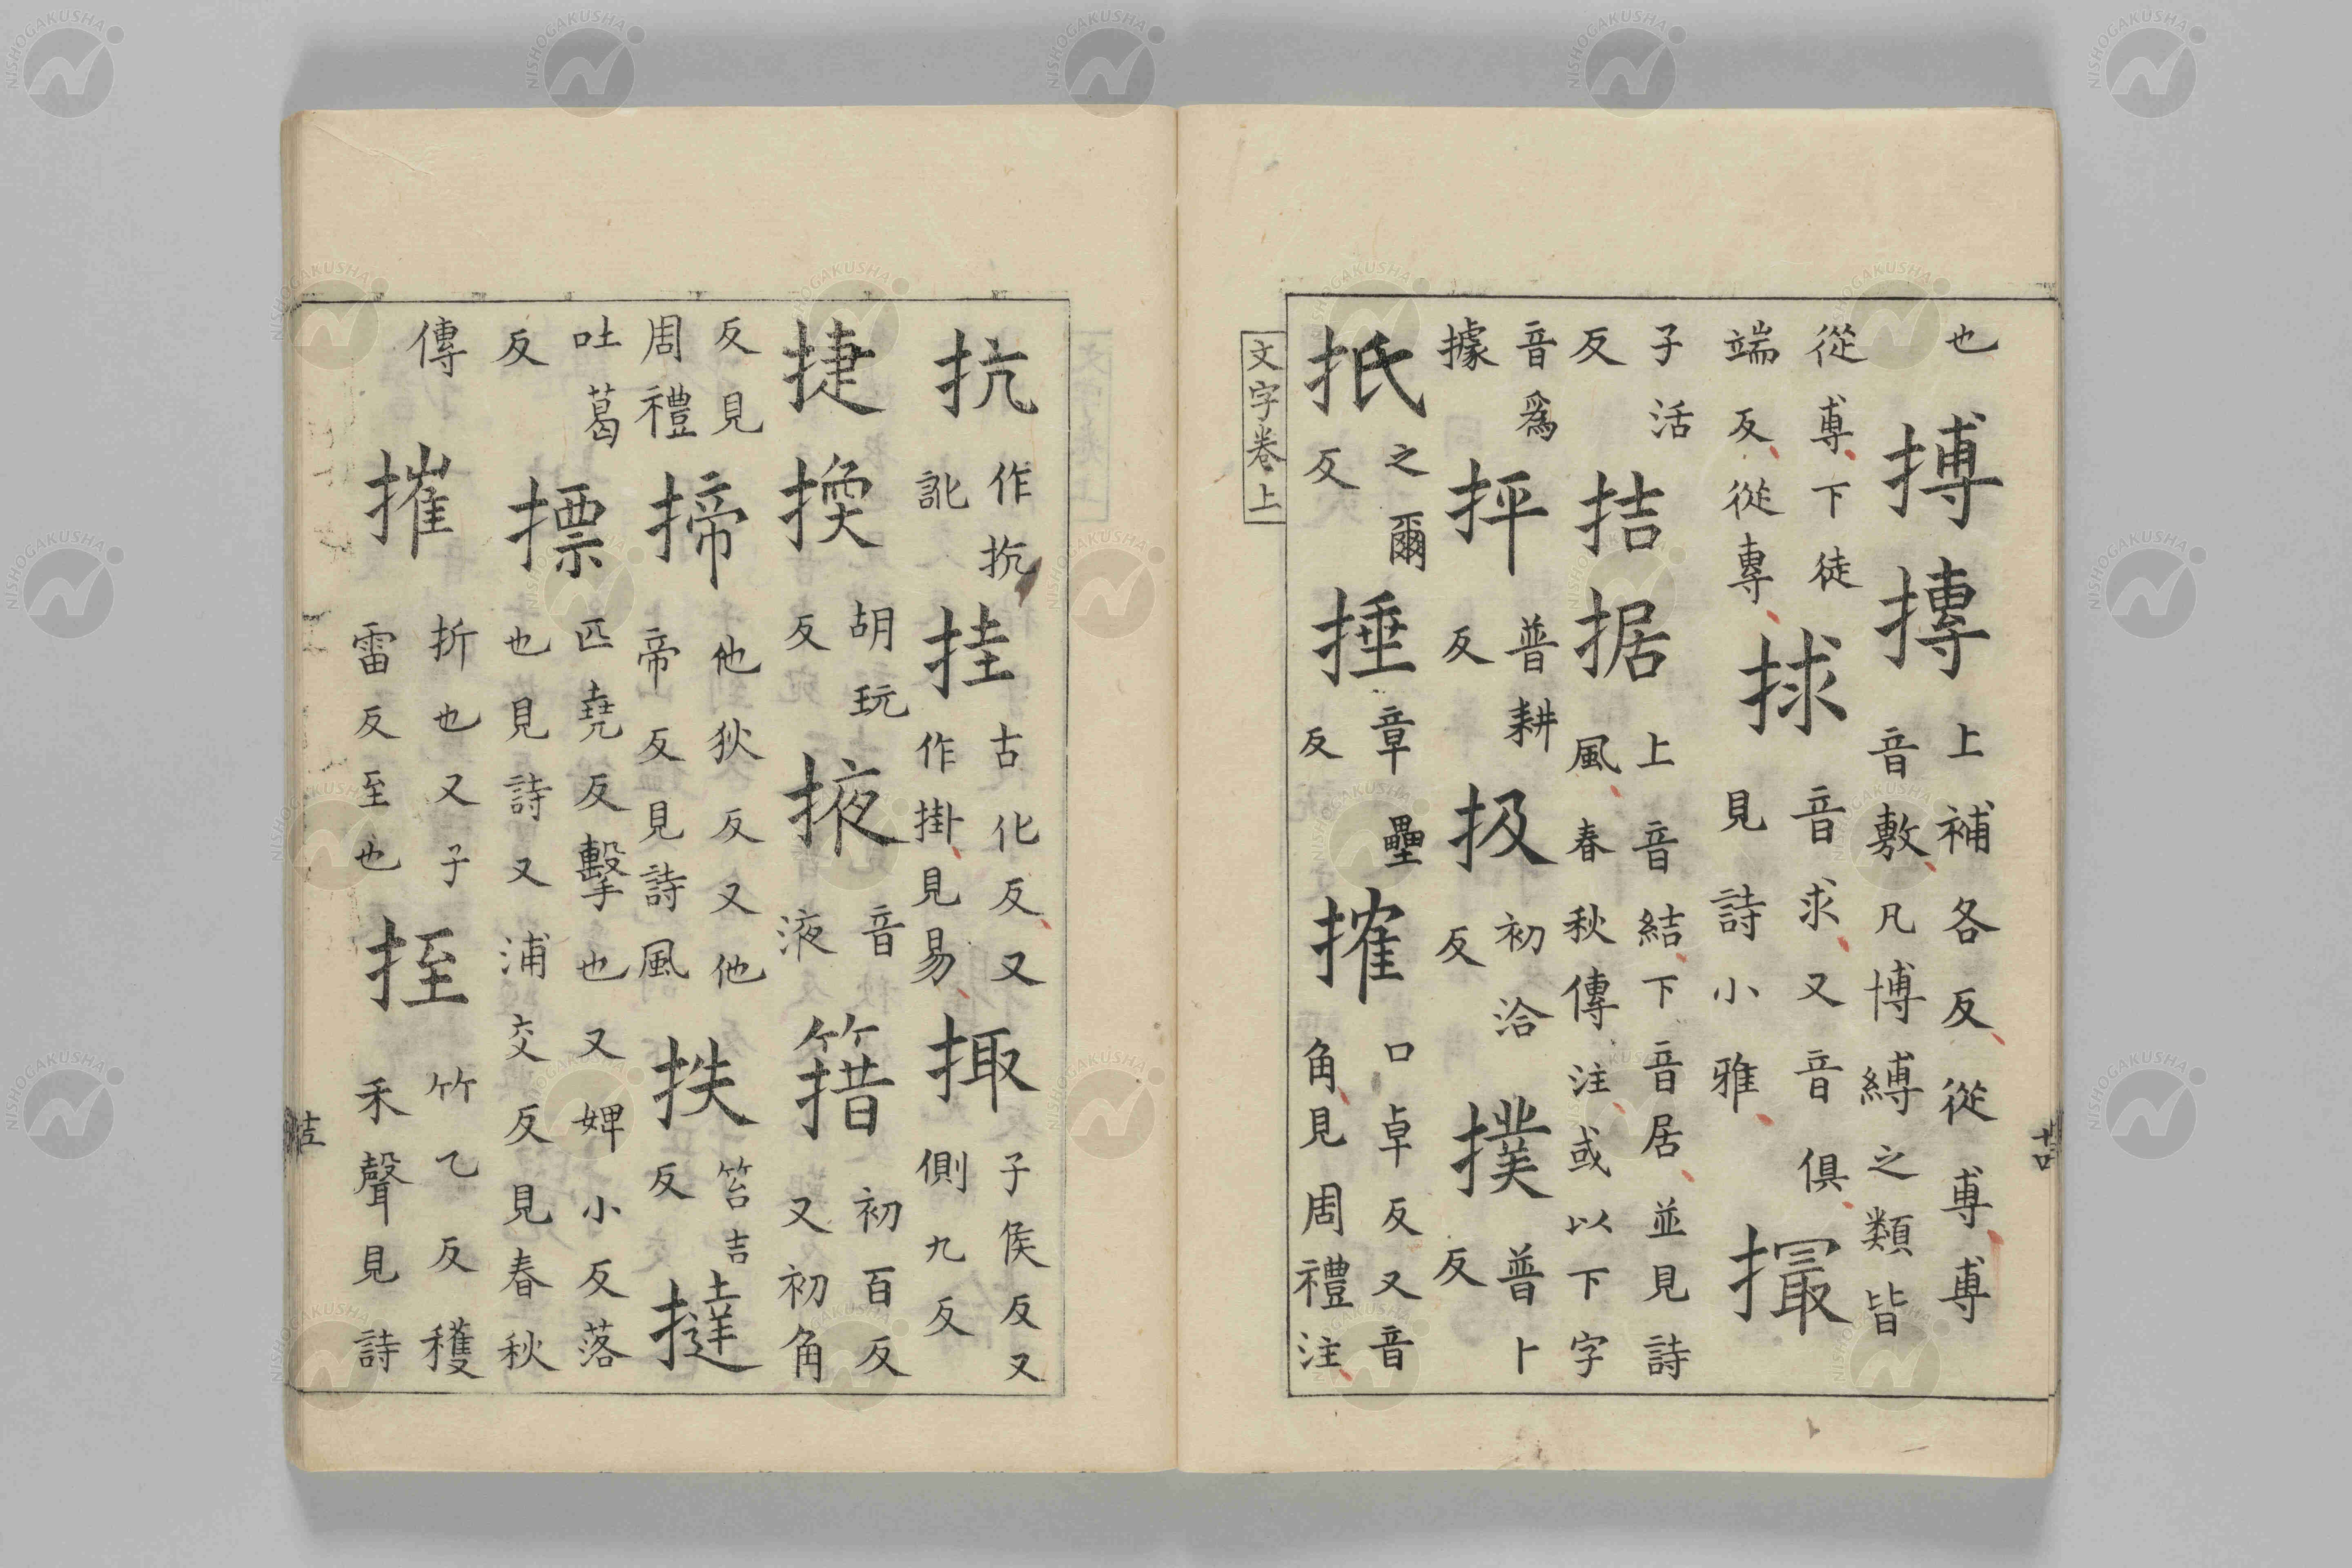 也搏摶上補各反從尃尃
音敷凡博縛之類皆
從尃下徒
端反從專捄音求又音俱
見詩小雅撮
子活
反拮据上音結下音居並見詩
風春秋傳注或以下字
音爲
據抨普耕
反扱初洽
反撲普卜
反
扺之爾
反捶章壘
反搉口卓反又音
角見周禮注
文字卷上
十四
抗作抗
訛挂古化反又
作掛見易掫子侯反又
側九反
捷換胡玩
反掖音
液簎初百反
又初角
反見
周禮揥他狄反又他
帝反見詩風抶笞吉
反撻
吐葛
反摽匹堯反擊也又婢小反落
也見詩又浦交反見春秋
傳摧折也又子
雷反至也挃竹乙反穫
禾聲見詩
十五
NISHOGAKUSHA